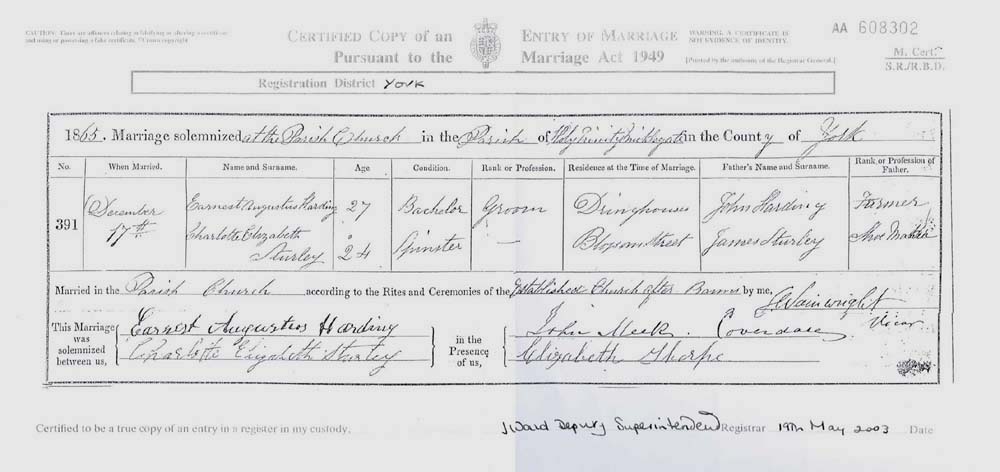 CAUTION: There are offences relating to falsifying or altering a certificate and using or possessing a false certificate. © Crown copyright
CERTIFIED COPY OF AN ENTRY OF MARRIAGE
Pursuant to the Marriage Act 1949
WARNING: A CERTIFICATE IS NOT EVIDENCE OF IDENTITY.
[Printed by the authority of the Registrar General.]
AA 608302
M. Cert.
S.R./R.B.D.
Registration District York
1865. Marriage solemnized at the Parish Church in the Parish of Holy Trinity Micklegate in the County of York
No. When Married. Name and Surname. Age Condition. Rank or Profession. Residence at the Time of Marriage. Father's Name and Surname. Rank or Profession of Father.
391 December 17th
Earnest Augustus Harding 27 Bachelor Groom Dringhouses John Harding Farmer
Charlotte Elizabeth Sturley 24 Spinster — Blossom Street James Sturley Shoe Maker
Married in the Parish Church according to the Rites and Ceremonies of the Established Church after Banns by me,
J Wainwright Vicar
This Marriage was solemnized between us,
Earnest Augustus Harding
Charlotte Elizabeth Sturley
in the Presence of us,
John Meek.
Elizabeth Thorpe
Certified to be a true copy of an entry in a register in my custody.
J Ward Deputy Superintendent Registrar 19th May 2003 Date